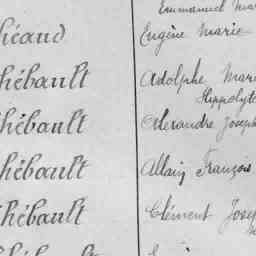 Emmanuel Mar
héaud Eugène Marie
hébault Adolphe Mari
Hippolyte
hébault Alexandre Joseph
hébault Allain François
hébault Clément Jose